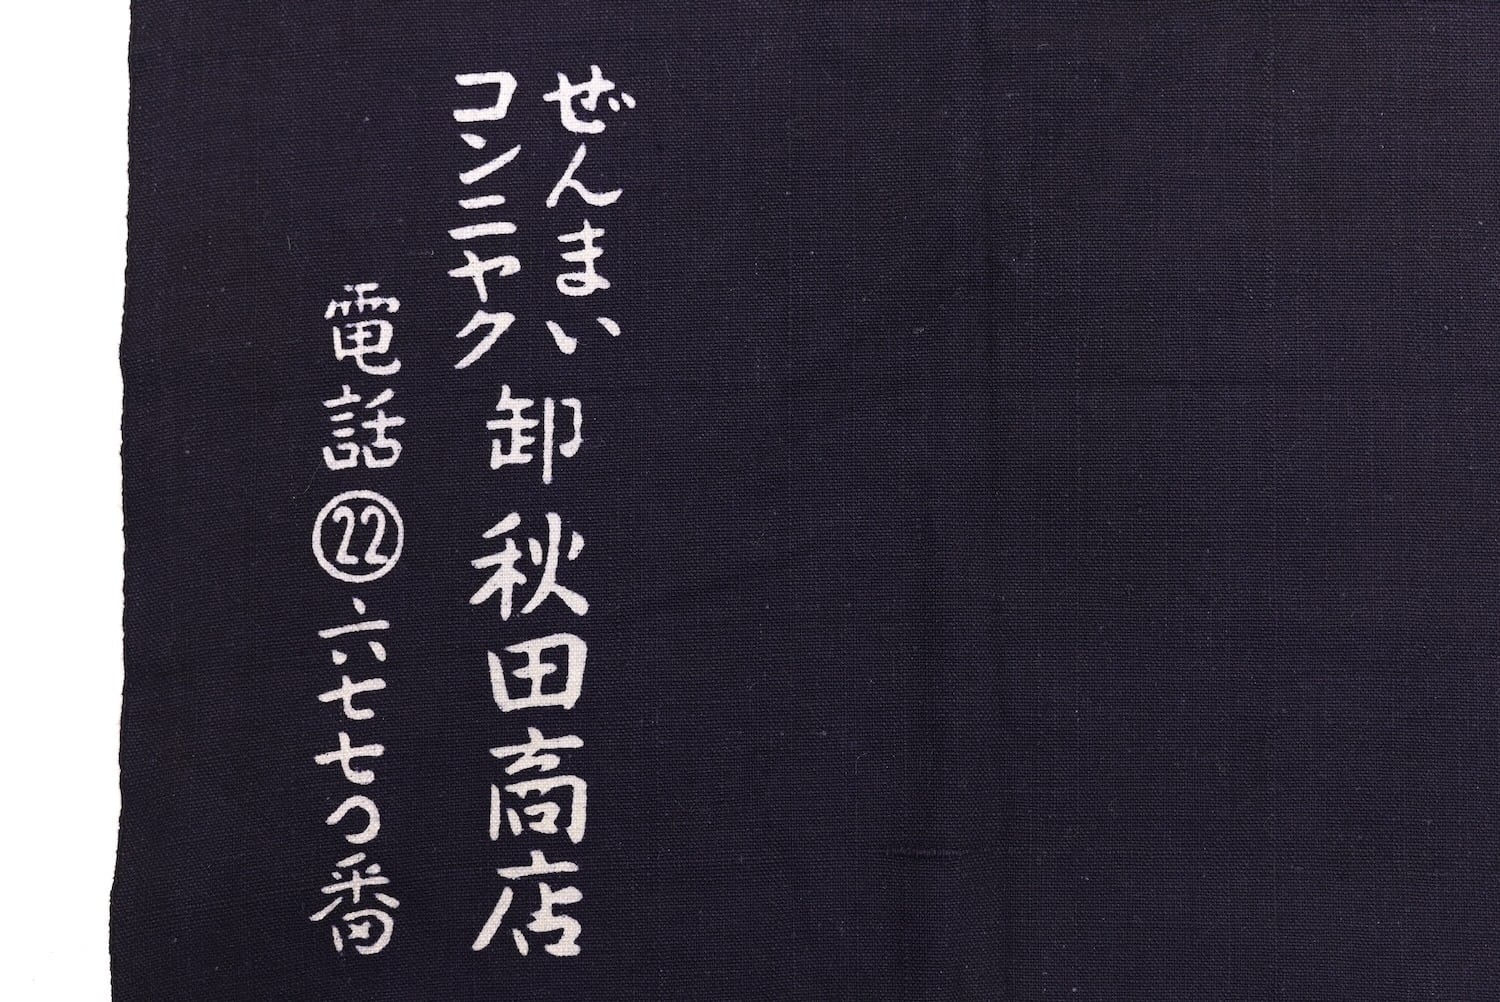 ぜんまい
コンニヤク
卸 秋田商店
電話㉒六七七つ番